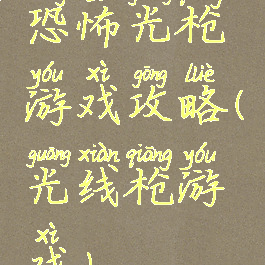 恐怖光枪
yóu xì gōng lüè
游戏攻略(
guāng xiàn qiāng yóu
光线枪游
xì
戏)